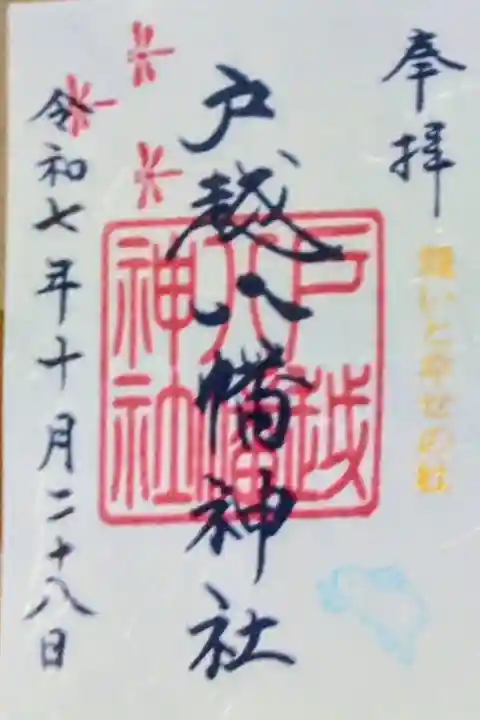 奉拝
願いと幸せの杜
戸越八幡神社
戸越八幡神社
令和七年十月二十八日